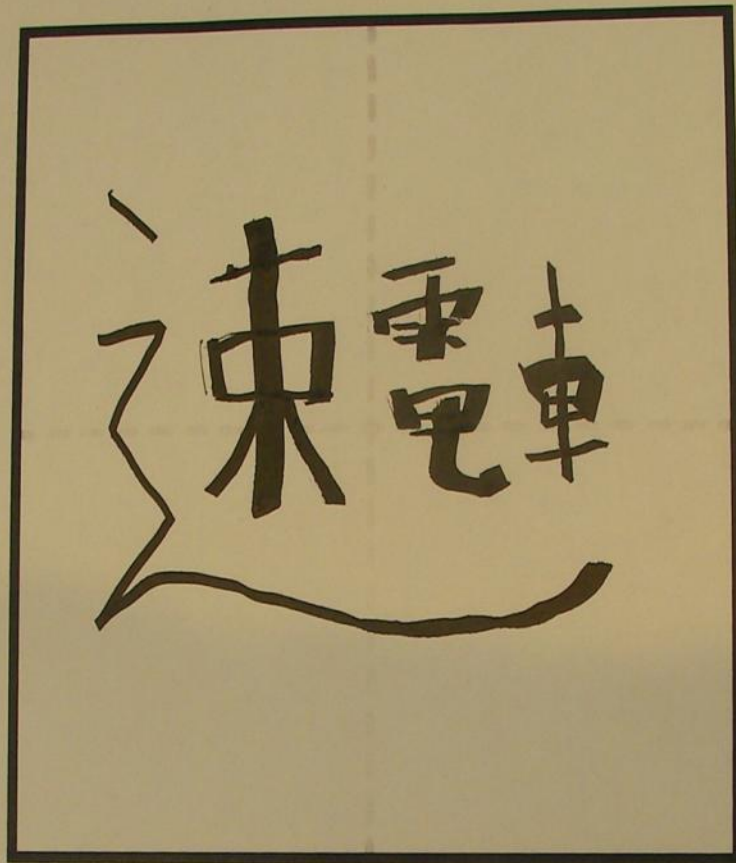 速電車